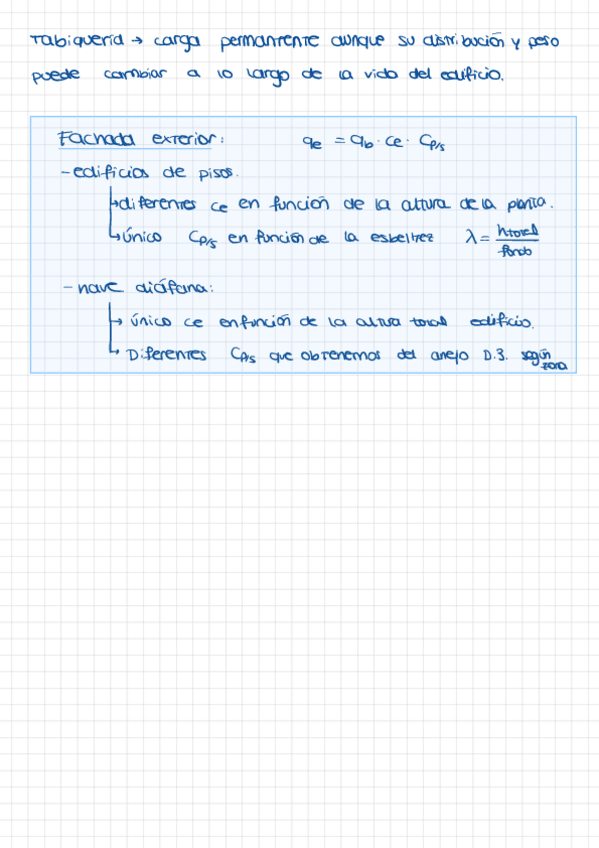 Tabiquería → carga permanente aunque su distribución y peso
puede cambiar a lo largo de la vida del edificio.
Fachada exterior: qe = qb · ce · Cp/s
- edificios de pisos.
↳ diferentes ce en función de la altura de la planta.
↳ único Cp/s en función de la esbeltez λ = htotal/fondo
- nave diáfana:
↳ único ce en función de la altura total edificio.
↳ Diferentes Cp/s que obtenemos del anejo D.3. según zona